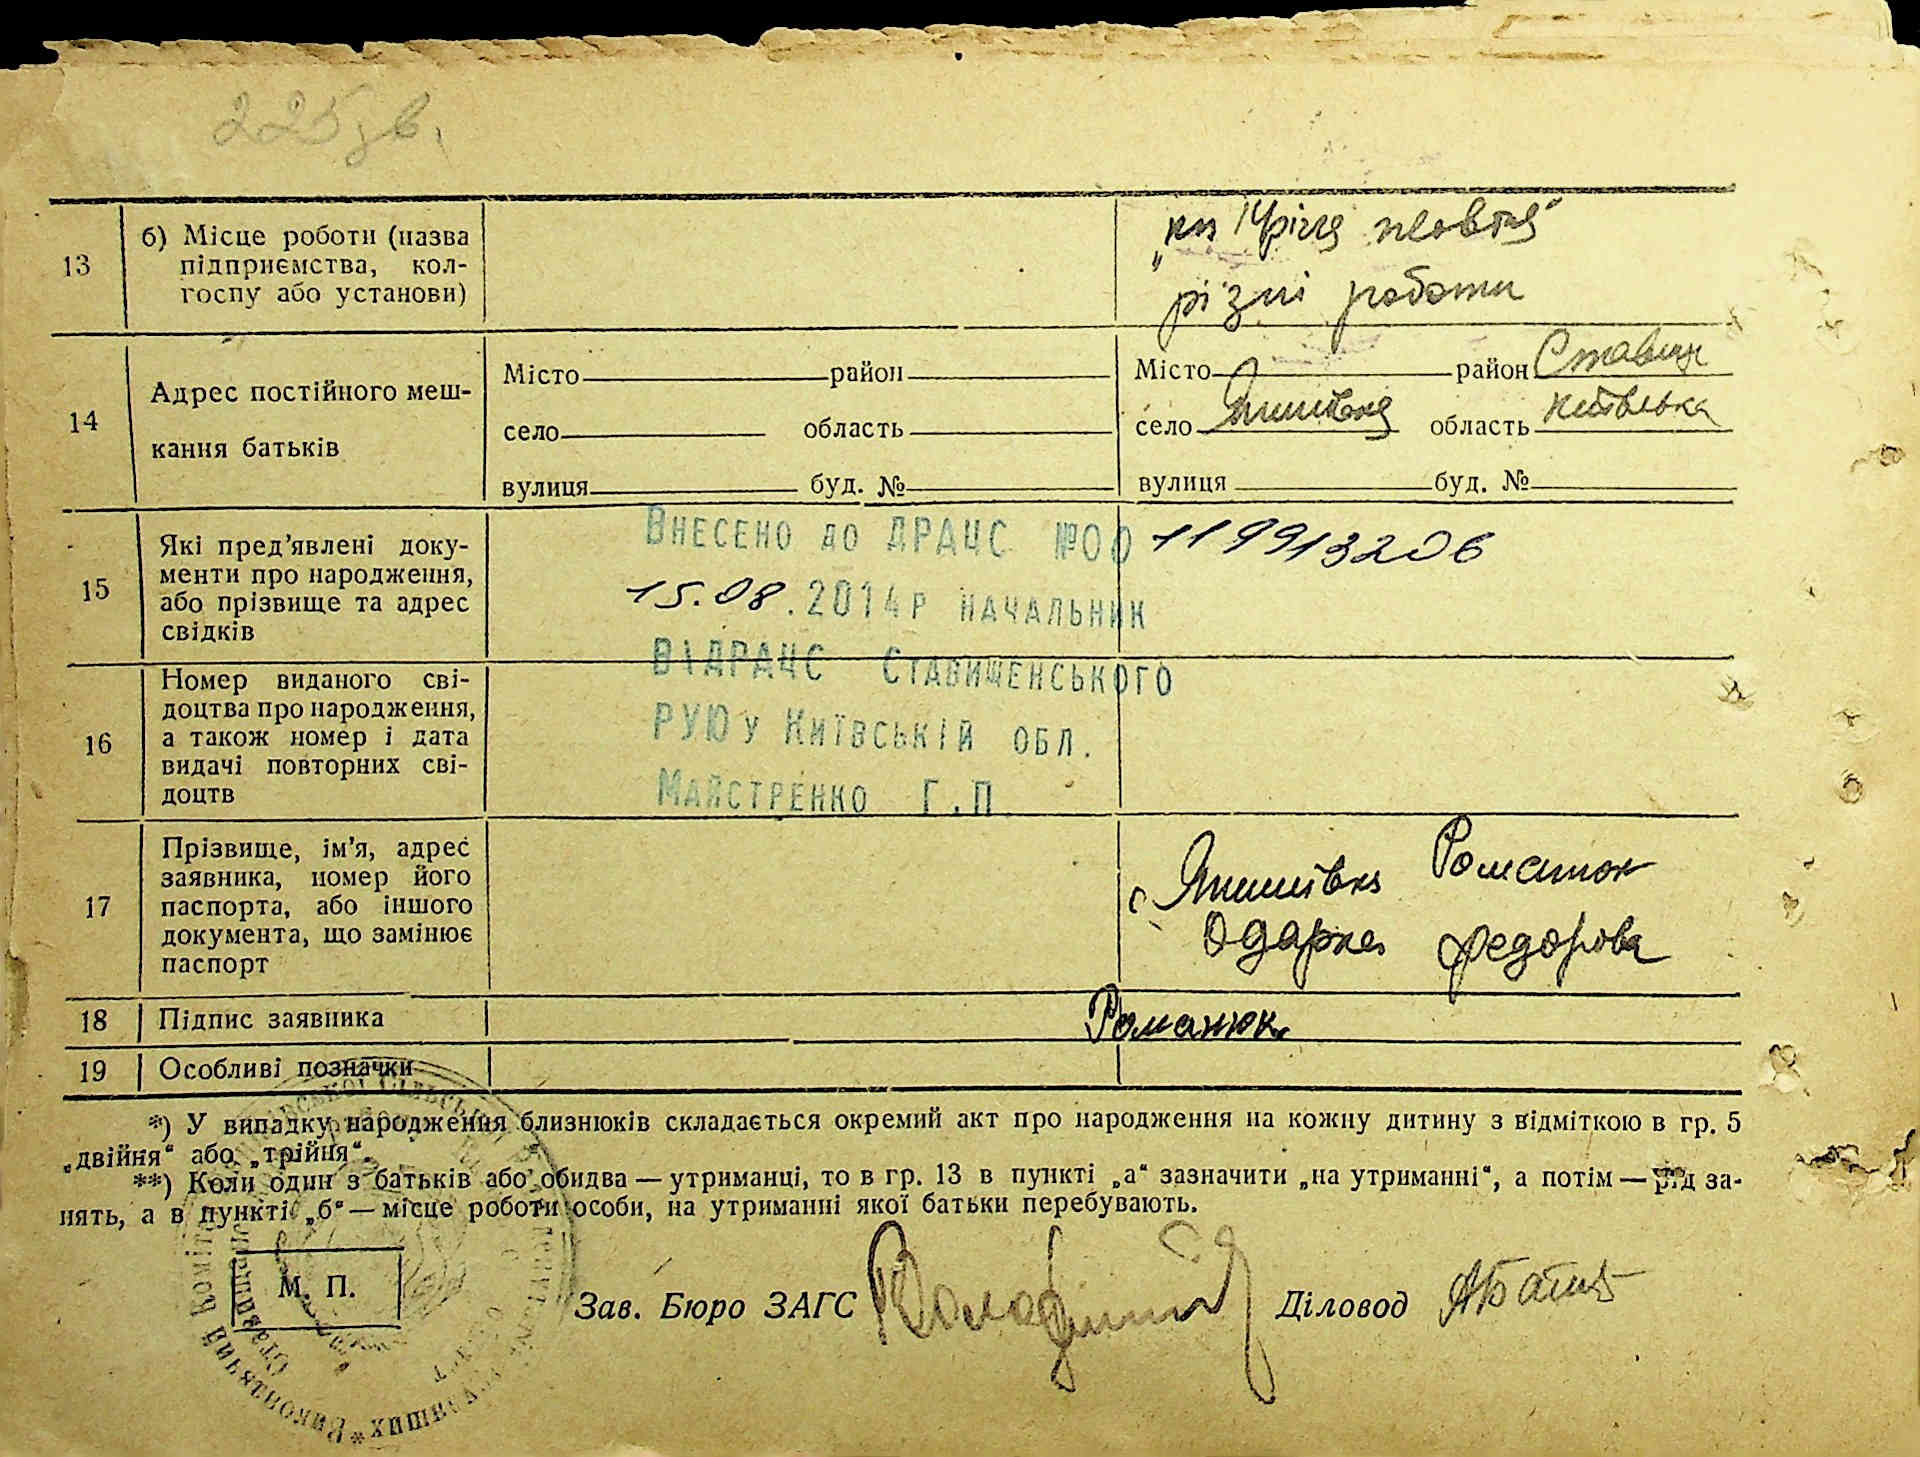 225 зв.
13
б) Місце роботи (назва
підприємства, кол-
госпу або установи)
„кп 14 річчя жовтня“
різні роботи
14
Адрес постійного меш-
кання батьків
Місто район
село область
вулиця буд. №
Місто район Ставищ
село Янишівка область Київська
вулиця буд. №
15
Які пред’явлені доку-
менти про народження,
або прізвище та адрес
свідків
Внесено до ДРАЦС №00 119913206
15.08.2014р начальник
ВДРАЦС Ставищенського
РУЮ у Київській обл.
Майстренко Г.П
16
Номер виданого сві-
доцтва про народження,
а також номер і дата
видачі повторних сві-
доцтв
17
Прізвище, ім’я, адрес
заявника, номер його
паспорта, або іншого
документа, що замінює
паспорт
с Янишівка Романюк
Одарка Федорова
18 Підпис заявника
Романюк
19 Особливі позначки
*) У випадку народження близнюків складається окремий акт про народження на кожну дитину з відміткою в гр. 5
„двійня“ або „трійня“.
**) Коли один з батьків або обидва — утриманці, то в гр. 13 в пункті „а“ зазначити „на утриманні“, а потім — рід за-
нять, а в пункті „б“ — місце роботи особи, на утриманні якої батьки перебувають.
М. П.
Зав. Бюро ЗАГС
Діловод
Виконавчий Коміт